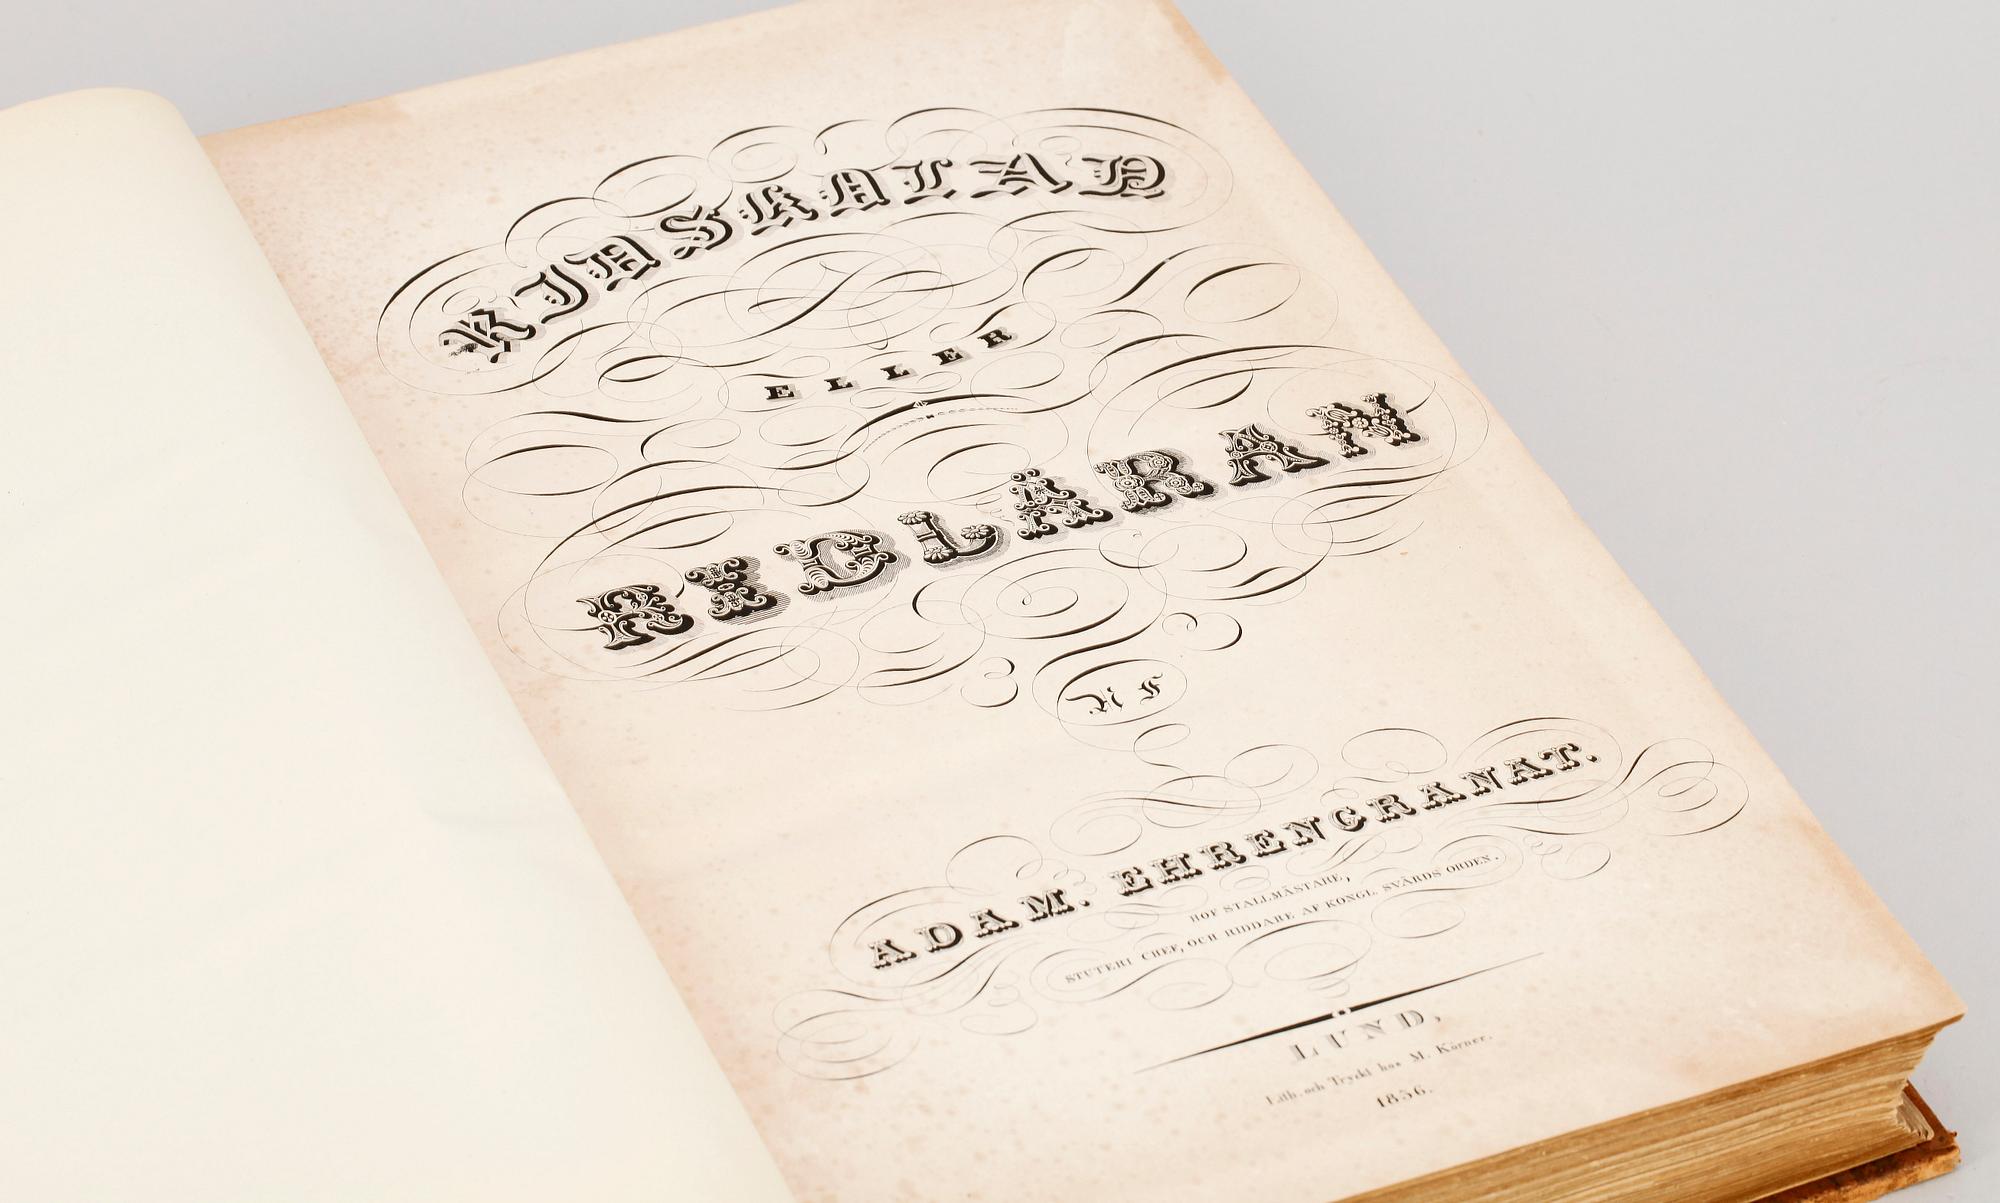 RIDSKOLAN
ELLER
RIDLÄRAN
AF
ADAM. EHRENGRANAT.
HOF STALLMÄSTARE,
STUTERI CHEF, OCH RIDDARE AF KONGL. SVÄRDS ORDEN.
LUND,
Lith. och Tryckt hos M. Körner.
1836.